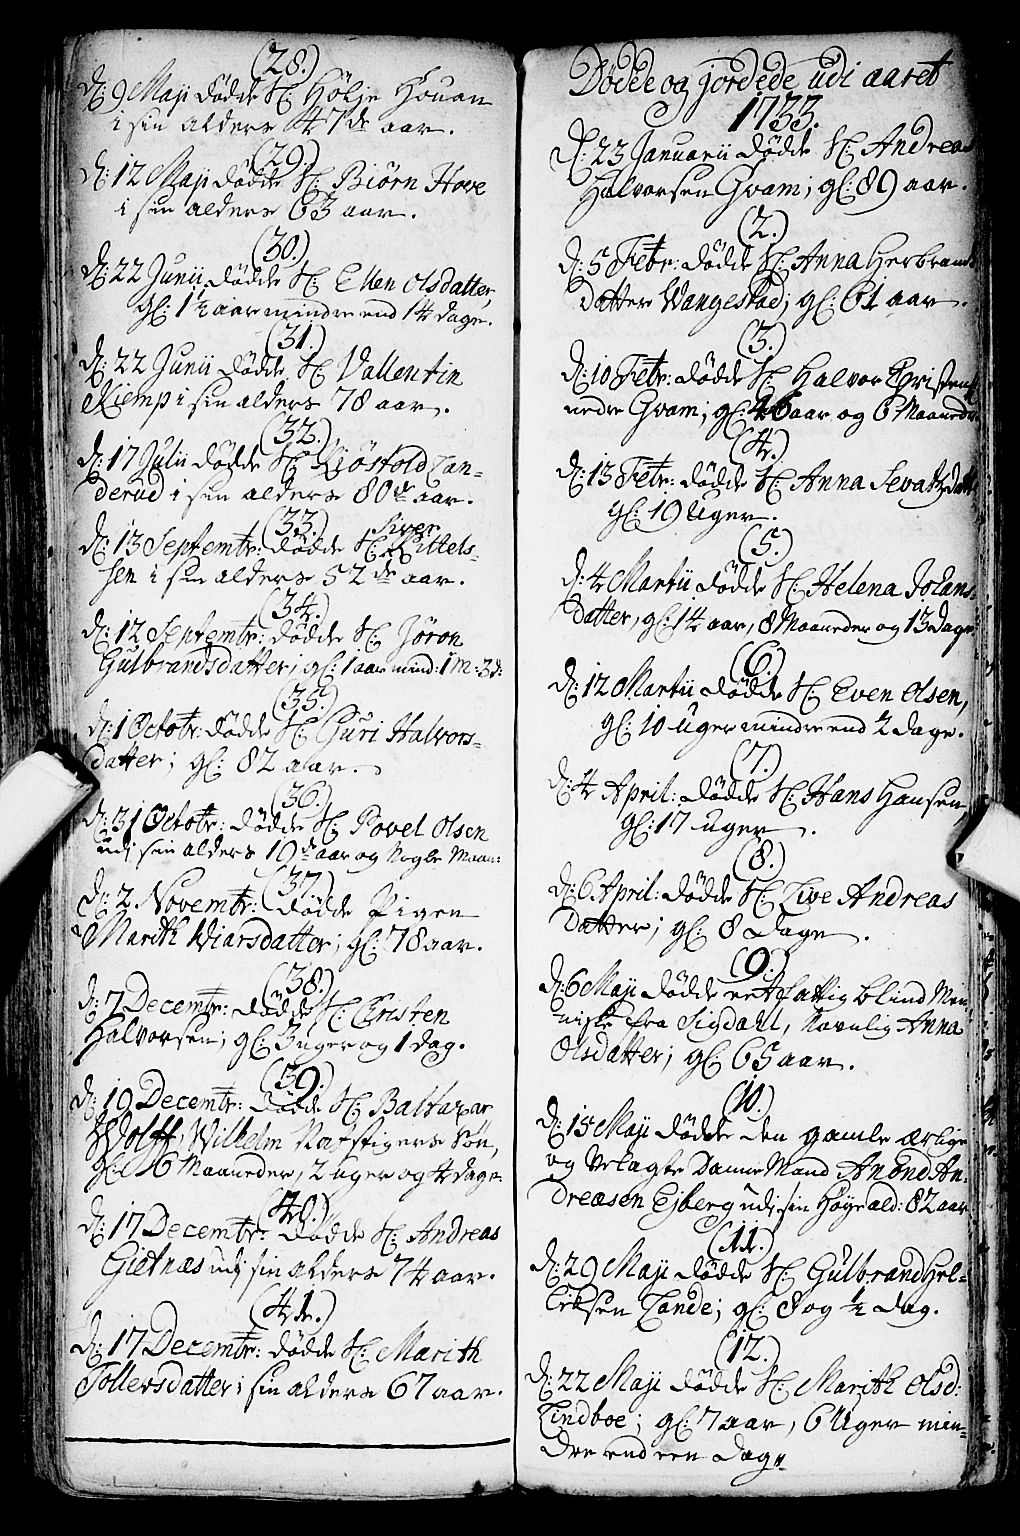 (28.)
d: 9 Maji dødde Sl: Hølje Houan
i sin alders 47de aar.
(29.)
d: 12 Maji dødde Sl: Biørn Hove
i sin alders 63 aar.
(30.)
d: 22 Junii dødde Sl: Ellen Olsdatter,
gl: 1½ aar mindre end 14 dage.
(31.)
d: 22 Junii dødde Sl: Vallentin
Kiemp i sin alders 78 aar.
(32.)
d: 17 Julii dødde Sl: Kiøstold Lan-
derud i sin alders 80de aar.
(33.)
Siver
d: 13 Septembr: dødde Sl: Kittels-
sen i sin alders 52de aar.
(34.)
d: 12 Septembr: dødde Sl: Jøron
Gulbrandsdatter; gl: 1 aar mind: 1 M: 3 d:
(35.)
d: 1 Octobr: dødde Sl: Guri Halvors-
datter; gl: 82 aar.
(36.)
d: 31 Octobr: dødde Sl: Povel Olsen
udi sin alders 19de aar og Nogle Maan:
(37.)
d: 2 Novembr: dødde Pigen
Marith Kiarsdatter; gl: 78 aar.
(38.)
d: 7 Decembr: dødde Sl: Christen
Halvorsen; gl: 3 uger og 1 dag.
(39.)
d: 19 Decembr: dødde Sl: Baltazar
Wolff, Wilhelm søn,
gl: 16 Maaneder, 2 uger og 4 dage.
(40.)
d: 17 Decembr: dødde Sl: Andreas
Gietnæs udi sin alders 74 aar.
(41.)
d: 17 Decembr: dødde Sl: Marith
Tollersdatter i sin alders 67 aar.
Dødde og jordede udi aaret
1733.
d: 23 Januarii dødde Sl: Andreas
Halvorsen Gvam; gl: 89 aar.
(2.)
d: 5 Febr: dødde Sl: Anna Herbrands
datter Wangestad; gl: 61 aar.
(3.)
d: 10 Febr: dødde Sl: Halvor Christens:
nedre Gvam; gl: 46 aar og 6 Maaneder
(4.)
d: 13 Febr: dødde Sl: Anna Sevatsdatt
gl: 19 Uger.
(5.)
d: 4 Martii dødde Sl: Helena Johans
datter, gl: 14 aar, 8 Maaneder og 13 dage
(6.)
d: 12 Martii dødde Sl: Even Olsen,
gl: 10 uger mindre end 2 dage.
(7.)
d: 4 April: dødde Sl: Hans Hansen,
gl: 17 uger.
(8.)
d: 6 April: dødde Sl: Live Andreas
datter; gl: 8 dage.
(9.)
d: 6 Maji dødde eet fattig blind Men-
niske fra Sigdahl, Navnlig Anna
Olsdatter; gl: 65 aar.
(10.)
d: 15 Maji dødde den gamle ærlige
og velagte Danne Mand Amond An-
dreæsen Ejberg udi sin høye ald: 82 aar
(11.)
d: 29 Maji dødde Sl: Gulbrand Hel-
liksen Lande; gl: 8 og ½ dag.
(12.)
d: 22 Maji dødde Sl: Marith Olsd:
Lindboe; gl: 7 aar, 6 Uger min-
dre end een dag.